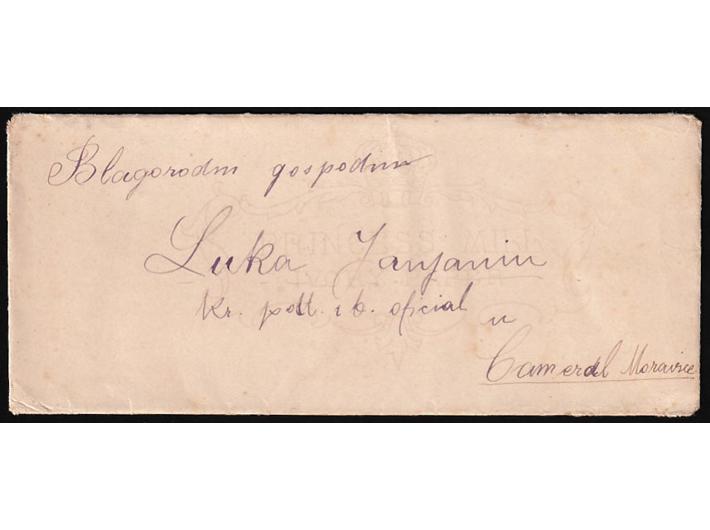 Blagorodni gospodin
Luka Janjanin
kr. pošt. i b. oficial
u
Cameral Moravice